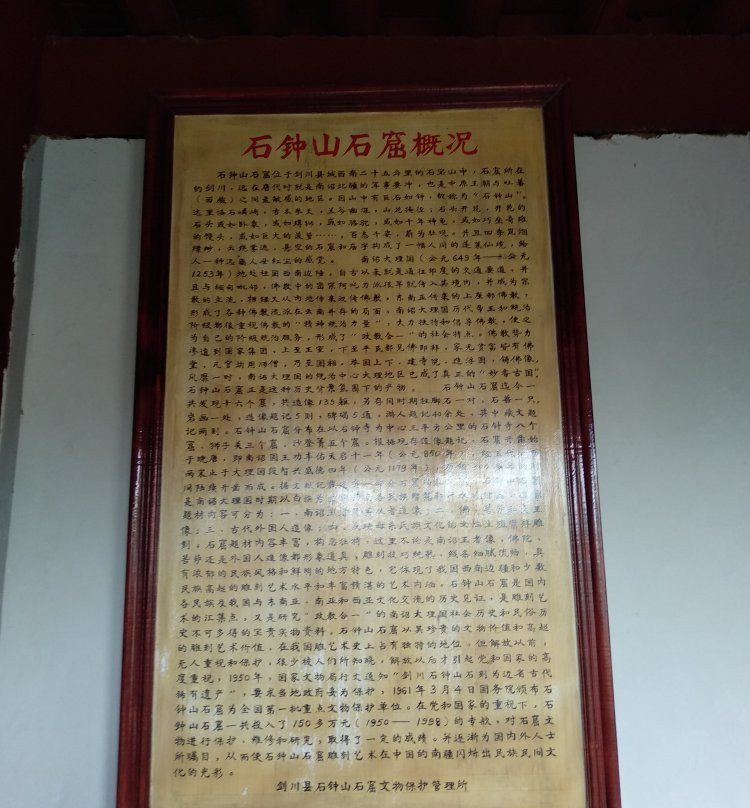 石钟山石窟概况
石钟山石窟位于剑川县城西南二十五公里的石宝山中，石窟所在
的剑川，远在唐代时就是南诏北疆的军事要冲，也是中原王朝与吐蕃
（西藏）之间最敏感的地区。因山中有巨石如钟，故称为“石钟山”。
这里怪石嶙峋，古木参天，
石头或如卧象，或如蹲狮，或如骆驼，或如千年神龟，或如巧坐奇雅
的馒头，或如巨大的莲笋……，百态千姿，蔚为壮观，并且四季岚滃
缭绕，云烧雾遮，悬空的石窟和庙宇构成了一幅人间的蓬莱仙境，给
人一种远离人世红尘的感觉。 南诏大理国（公元649年——公元
1253年）地处祖国西南边陲，自古以来就是通往印度的交通要道，并
且与缅甸毗邻，佛教中的密宗阿吒力派很早就传入其境内，并成为宗
教的主流，相继又从内地传来汉传佛教，东南亚传来的上座部佛教，
形成了各种佛教流派在云南并存的局面，南诏大理国历代帝王和统治
阶级都很重视佛教的“精神统治力量”，大力扶持和倡导佛教，使之
为自己的阶级统治服务，形成了“政教合一”的社会特点。佛教势力
渗透到国家集团，上至王室，下至平民都见佛即拜，家无贫富皆有佛
堂，
风靡一时，南诏大理国的统治中心大理地区已成了真正的“妙香古国”，
石钟山石窟正是这种历史背景氛围下的产物。 石钟山石窟迄今一
共发现十六个窟，共造像139躯，另存同时期狂脚石一对，石兽一只，
岩画一处，造像题记5则，碑碣5通，游人题记40余处，其中梵文题
记两则。石钟山石窟分布在以石钟寺为中心三平方公里的石钟寺八个
窟、狮子关三个窟、沙登箐五个窟，根据现存造像题记，石窟开凿始
于晚唐，即南诏国王劝丰佑天启十一年（公元850年），
两宋元于大理国段智兴盛德四年（公元1179年）
间陆续开凿而成。
是南诏大理国时期以白族为
题材内容可分为：一、南诏王
像；三、古代外国人造像；四、反映
刻。石窟题材内容丰富，构思独特，这里不论是南诏王者像，佛陀、
菩萨还是外国人造像都形象逼真，雕刻技巧娴熟，线条细腻流畅，具
有浓郁的民族风格和鲜明的地方特色，它体现了我国西南边疆和少数
民族高超的雕刻艺术水平和丰富精湛的艺术内涵。石钟山石窟是国内
各民族及我国与东南亚、南亚和西亚文化交流的历史见证，是雕刻艺
术的汇集点，又是研究“政教合一”的南诏大理国社会历史和民俗历
史不可多得的宝贵实物资料。石钟山石窟以其珍贵的文物价值和高超
的雕刻艺术价值，在我国雕刻艺术史上占有独特的地位。但解放以前，
无人重视和保护，很少被人们所知晓，解放以后才引起党和国家的高
度重视，1950年，国家文物局行文通知“剑川石钟山石刻为边省古代
稀有遗产”，要求当地政府妥为保护，1961年3月4日国务院颁布石
钟山石窟为全国第一批重点文物保护单位。在党和国家的重视下，石
钟山石窟一共投入了150多万元（1950——1998）的专款，对石窟文
物进行保护、维修和研究，取得了一定的成绩。并逐渐为国内外人士
所瞩目，从而使石钟山石窟雕刻艺术在中国的南疆闪烁出民族民间文
化的光彩。
剑川县石钟山石窟文物保护管理所